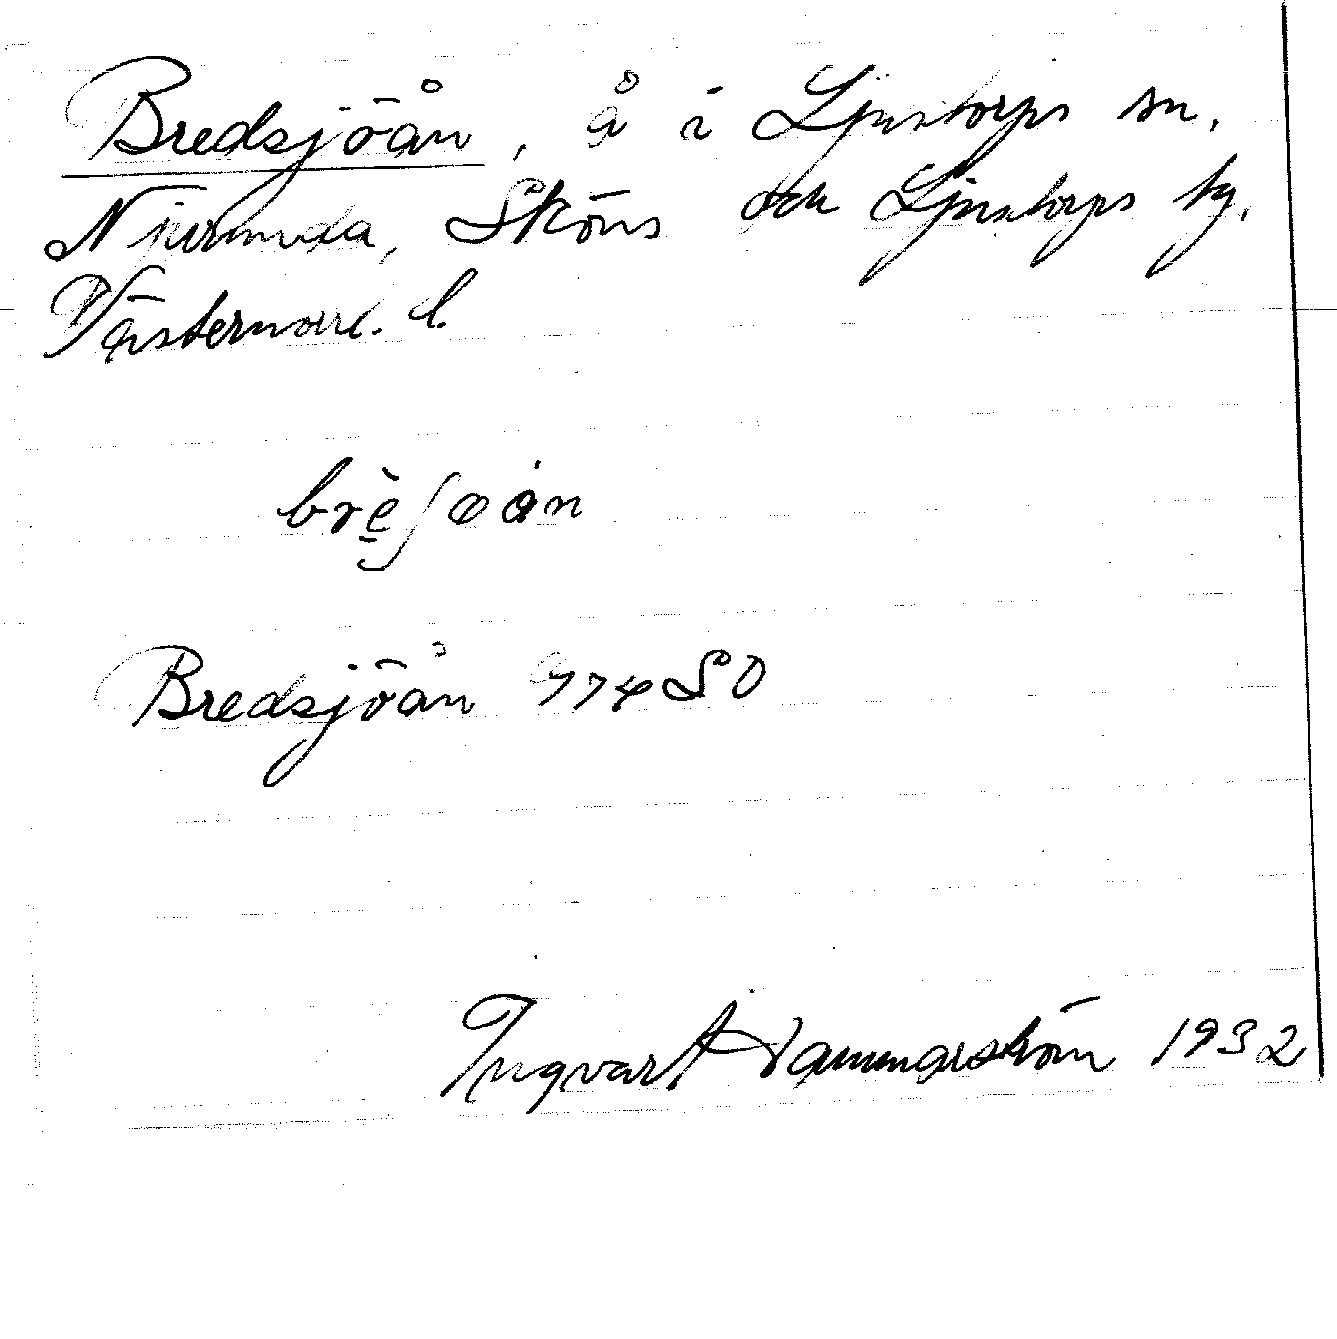 Bredsjöån, å i Ljustorps sn,
Njurunda, Sköns och Ljustorps tg,
Västernorrl. l.
Bredsjöån 774 SO
Ingvar Hammarström 1932